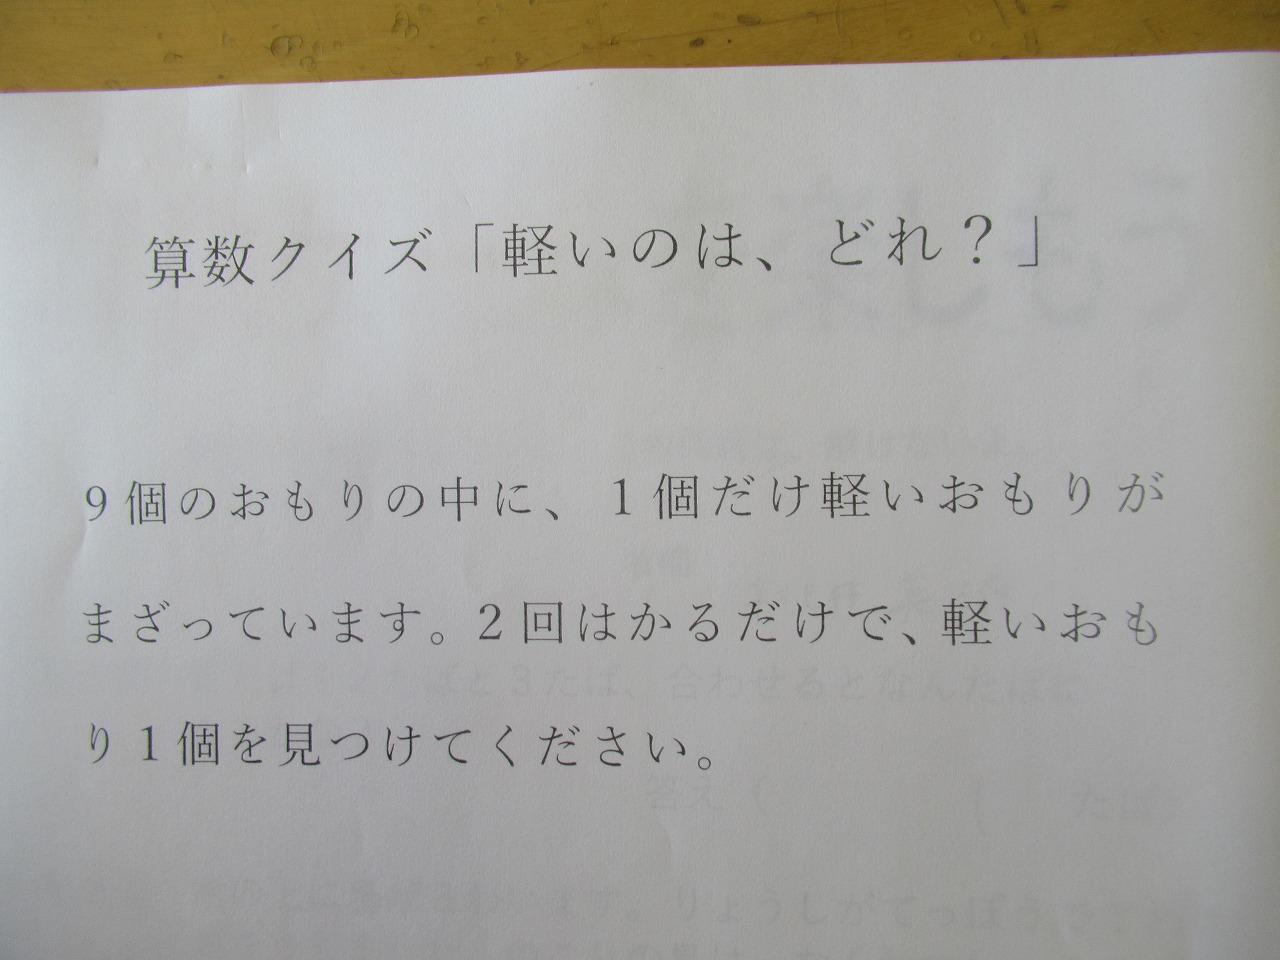 算数クイズ「軽いのは、どれ？」
９個のおもりの中に、１個だけ軽いおもりが
まざっています。２回はかるだけで、軽いおも
り１個を見つけてください。